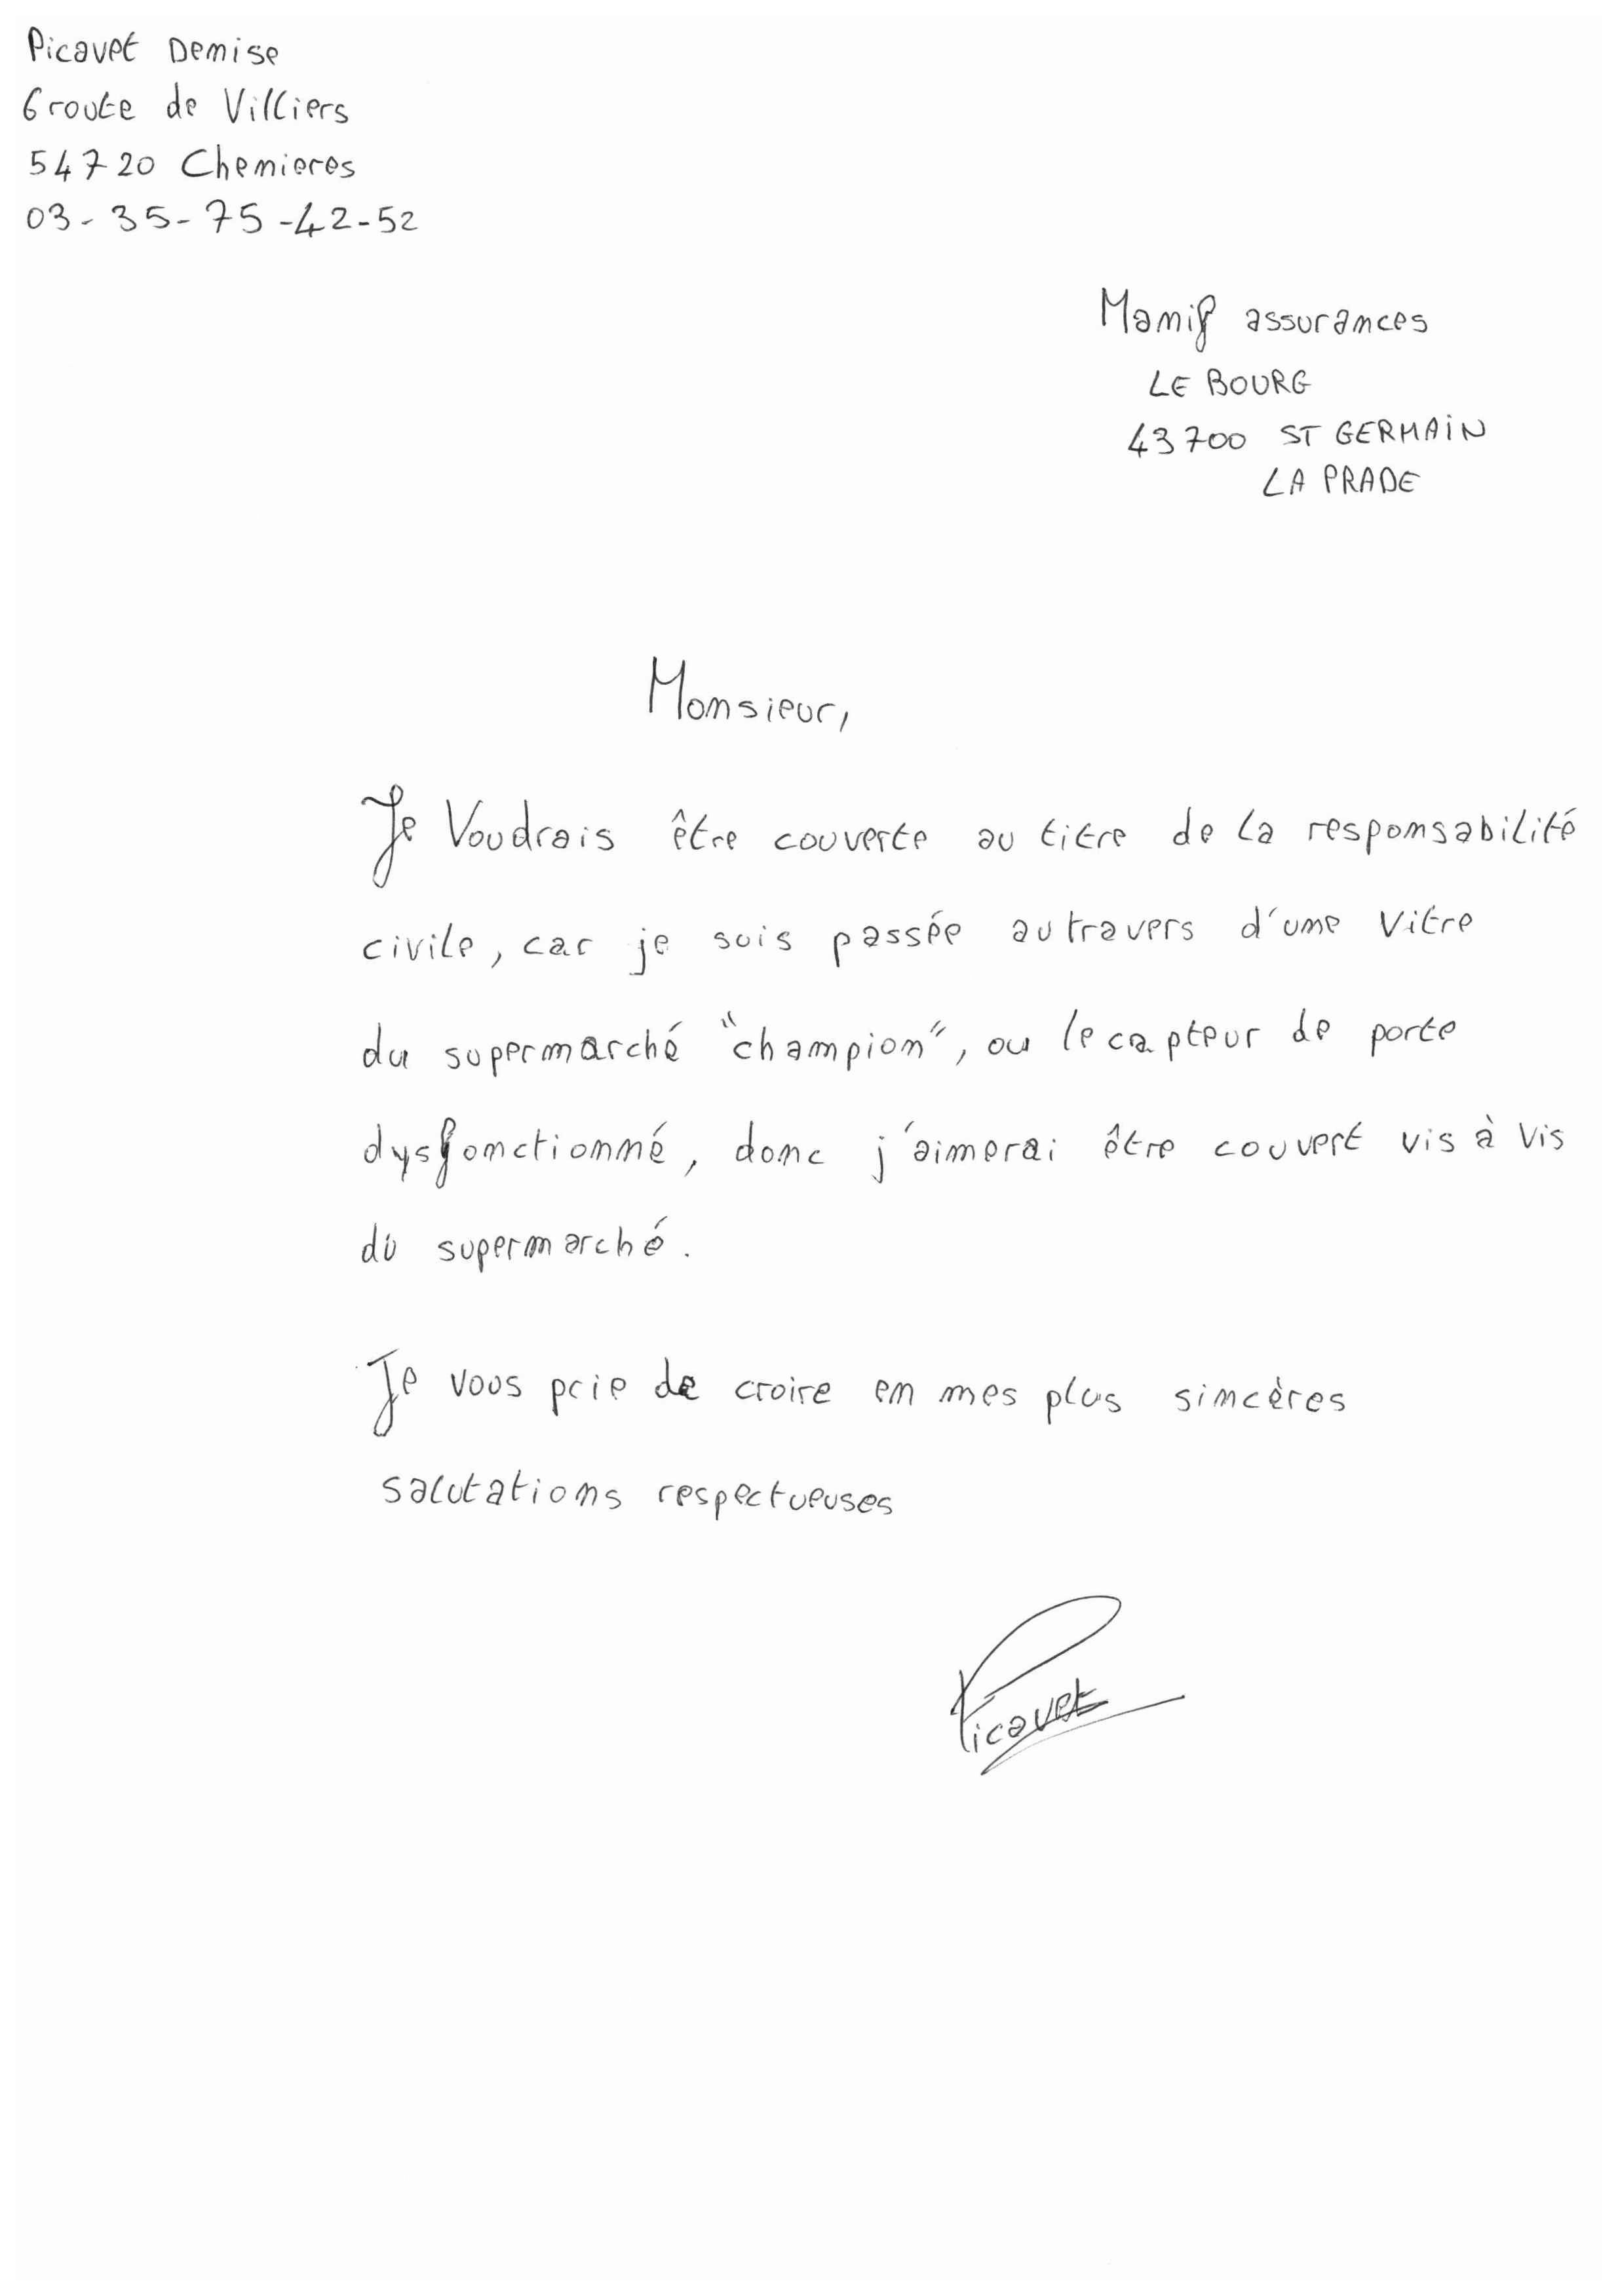 Picavet Denise
6 route de Villiers
54720 Chenieres
03-35-75-42-52
Mamif assurances
LE BOURG
43700 ST GERMAIN
LA PRADE
Monsieur,
Je Voudrais être couverte au titre de la responsabilité
civile, car je suis passée au travers d'une vitre
du supermarché "champion", ou le capteur de porte
dysfonctionné, donc j'aimerai être couvert vis à vis
du supermarché.
Je vous prie de croire en mes plus sincères
salutations respectueuses
Picavet